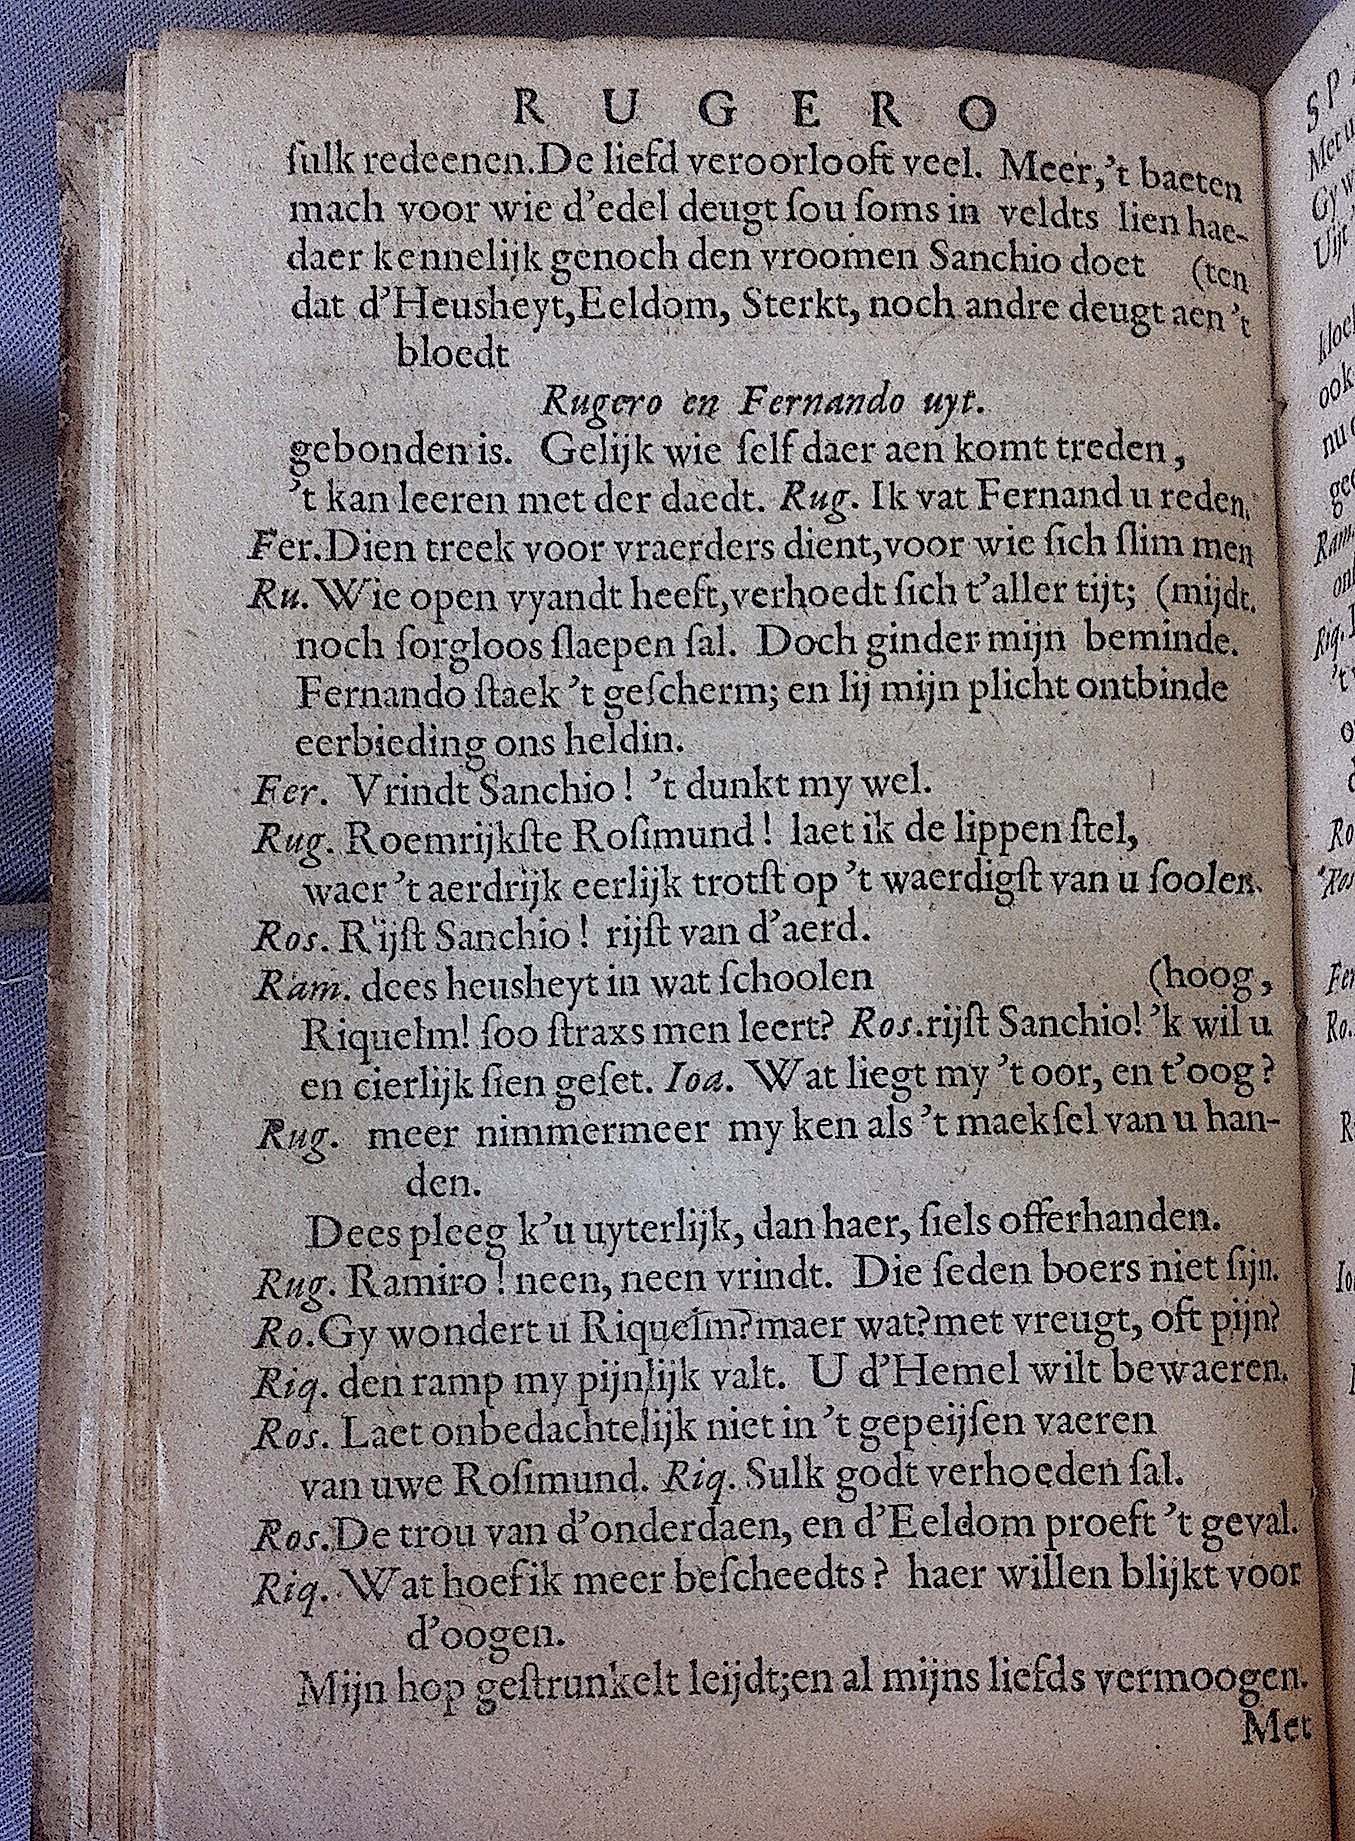 R U G E R O
ſulk redeenen. De liefd veroorlooft veel. Meer, 't baeten
mach voor wie d'edel deugt ſou ſoms in veldts lien hae-
daer kennelijk genoch den vroomen Sanchio doet (ten
dat d'Heusheyt, Eeldom, Sterkt, noch andre deugt aen 't
bloedt
Rugero en Fernando uyt.
gebonden is. Gelijk wie ſelf daer aen komt treden,
't kan leeren met der daedt. Rug. Ik vat Fernand u reden.
Fer. Dien treek voor vraerders dient, voor wie ſich ſlim men
Ru. Wie open vyandt heeft, verhoedt ſich t'aller tijt; (mijdt.
noch ſorgloos ſlaepen ſal. Doch ginder mijn beminde.
Fernando ſtaek 't geſcherm; en lij mijn plicht ontbinde
eerbieding ons heldin.
Fer. Vrindt Sanchio! 't dunkt my wel.
Rug. Roemrijkſte Roſimund! laet ik de lippen ſtel,
waer 't aerdrijk eerlijk trotſt op 't waerdigſt van u ſoolen.
Ros. Rijſt Sanchio! rijſt van d'aerd.
Ram. dees heusheyt in wat ſchoolen (hoog,
Riquelm! ſoo ſtraxs men leert? Ros. rijſt Sanchio! 'k wil u
en cierlijk ſien geſet. Ioa. Wat liegt my 't oor, en t'oog?
Rug. meer nimmermeer my ken als 't maekſel van u han-
den.
Dees pleeg k'u uyterlijk, dan haer, ſiels offerhanden.
Rug. Ramiro! neen, neen vrindt. Die ſeden boers niet ſijn.
Ro. Gy wondert u Riquelm? maer wat? met vreugt, oft pijn?
Riq. den ramp my pijnlijk valt. U d'Hemel wilt bewaeren.
Ros. Laet onbedachtelijk niet in 't gepeijſen vaeren
van uwe Roſimund. Riq. Sulk godt verhoeden ſal.
Ros. De trou van d'onderdaen, en d'Eeldom proeft 't geval.
Riq. Wat hoef ik meer beſcheedts? haer willen blijkt voor
d'oogen.
Mijn hop geſtrunkelt leijdt; en al mijns liefds vermoogen.
Met